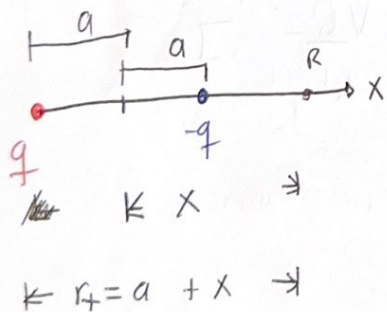 a
a
R
X
q
-q
X
r₊ = a + x